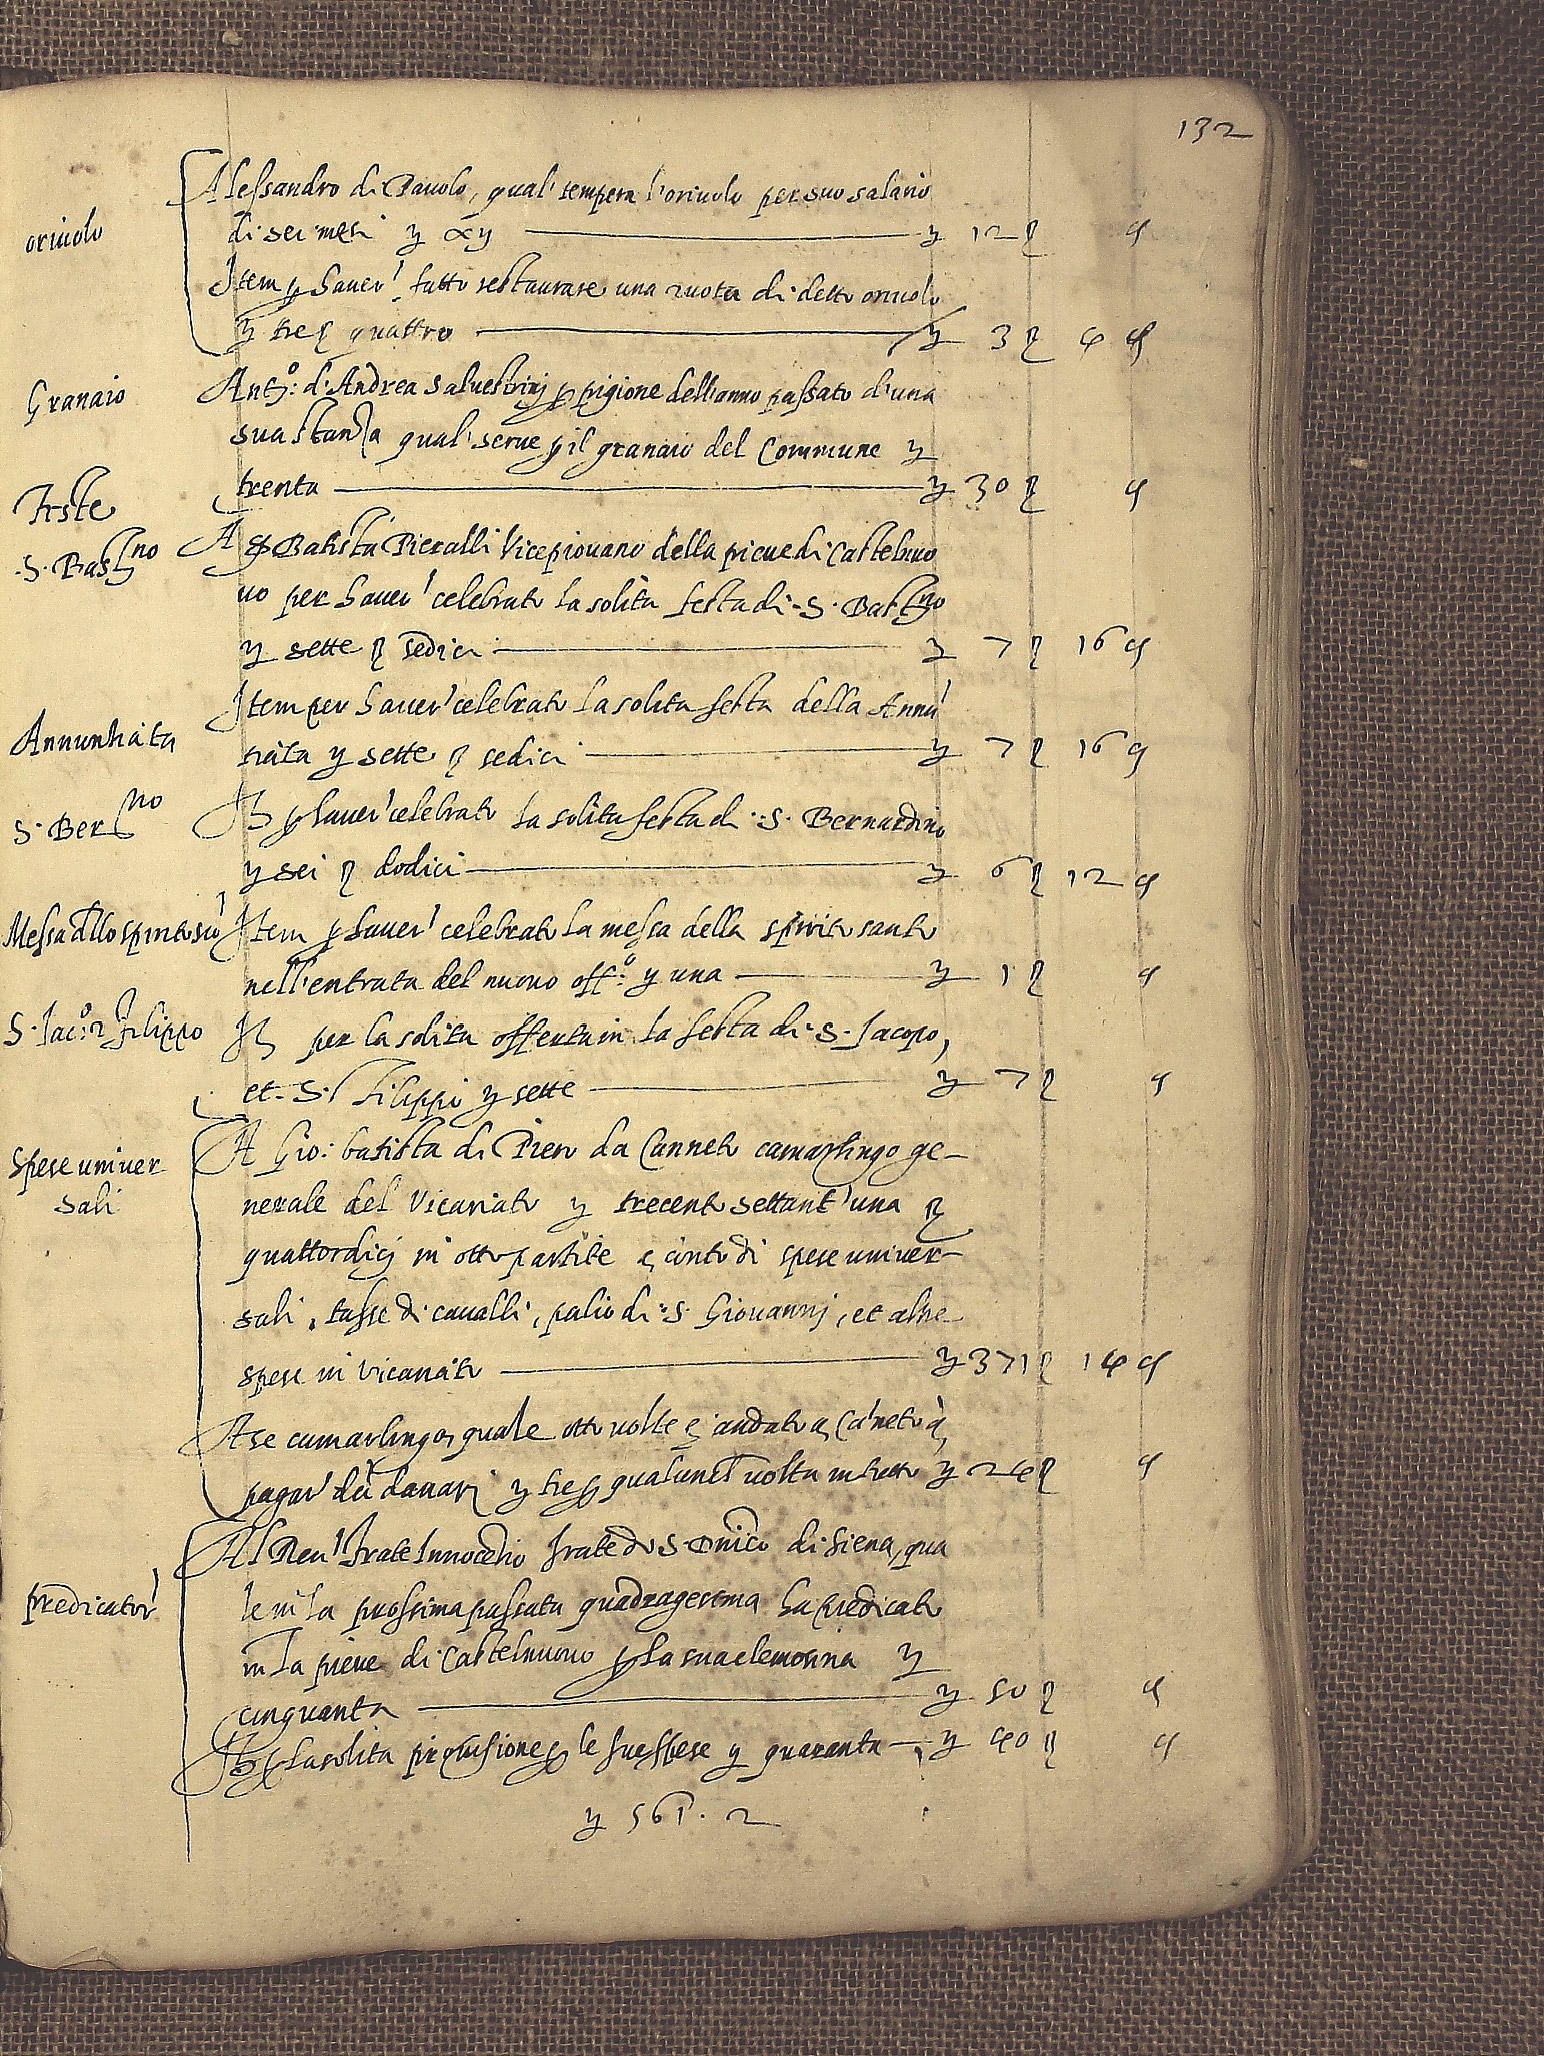 132
orivolo
Alessandro di Pavolo, qual' tempera l'orivolo per suo salario
di sei mesi £ xij £ 12 ß
Item p haver' fatto restaurare una ruota di detto orivolo
£ tre ß quattro £ 3 ß 4
Granaio
Anto: d'Andrea Salvestrinj p pigione dell'anno passato d'una
sua stanza qual' serve p il granaio del Commune £
trenta £ 30 ß
Feste
S. Bastno
A Batista Pieralli Vicepiovano della pieve di Castelnuo
vo per haver' celebrato la solita festa di S. Bastno
£ sette ß sedici £ 7 ß 16
Annuntiata
Item per haver' celebrato la solita festa della Annu'
tiata £ sette ß sedici £ 7 ß 16
S. Berno
It p haver' celebrato la solita festa di S. Bernardino
£ sei ß dodici £ 6 ß 12
Messa dllo spirito sto
Item p haver' celebrato la messa dello spirito santo
nell'entrata del nuovo offo: £ una £ 1 ß
S. Jaco: et filippo
It per la solita offerta in la festa di S. Jacopo,
et S. Filippo £ sette £ 7 ß
Spese univer
sali
A Gio: batista di Piero da Canneto camarlingo ge-
nerale del Vicariato £ trecento settant'una ß
quattordicj in otto partite a conto di spese univer-
sali, tasse di cavalli, palio di S. Giovannj, et altre
spese in vicariato £ 371 ß 14
A se camarlingo, quale otto volte è andato a Ca'neto à
pagar' dti danarj £ tre p qualunch volta in tutto £ 24 ß
predicator'
Al Rev' frate Innocetio frate di S. Dnico di Siena, qua
le in la prossima passata quadragesima ha predicato
in la pieve di Castelnuovo p la sua elemosina £
cinquanta £ 50 ß
It p la solita provisione p le sue spese £ quaranta £ 40 ß
£ 561. 2